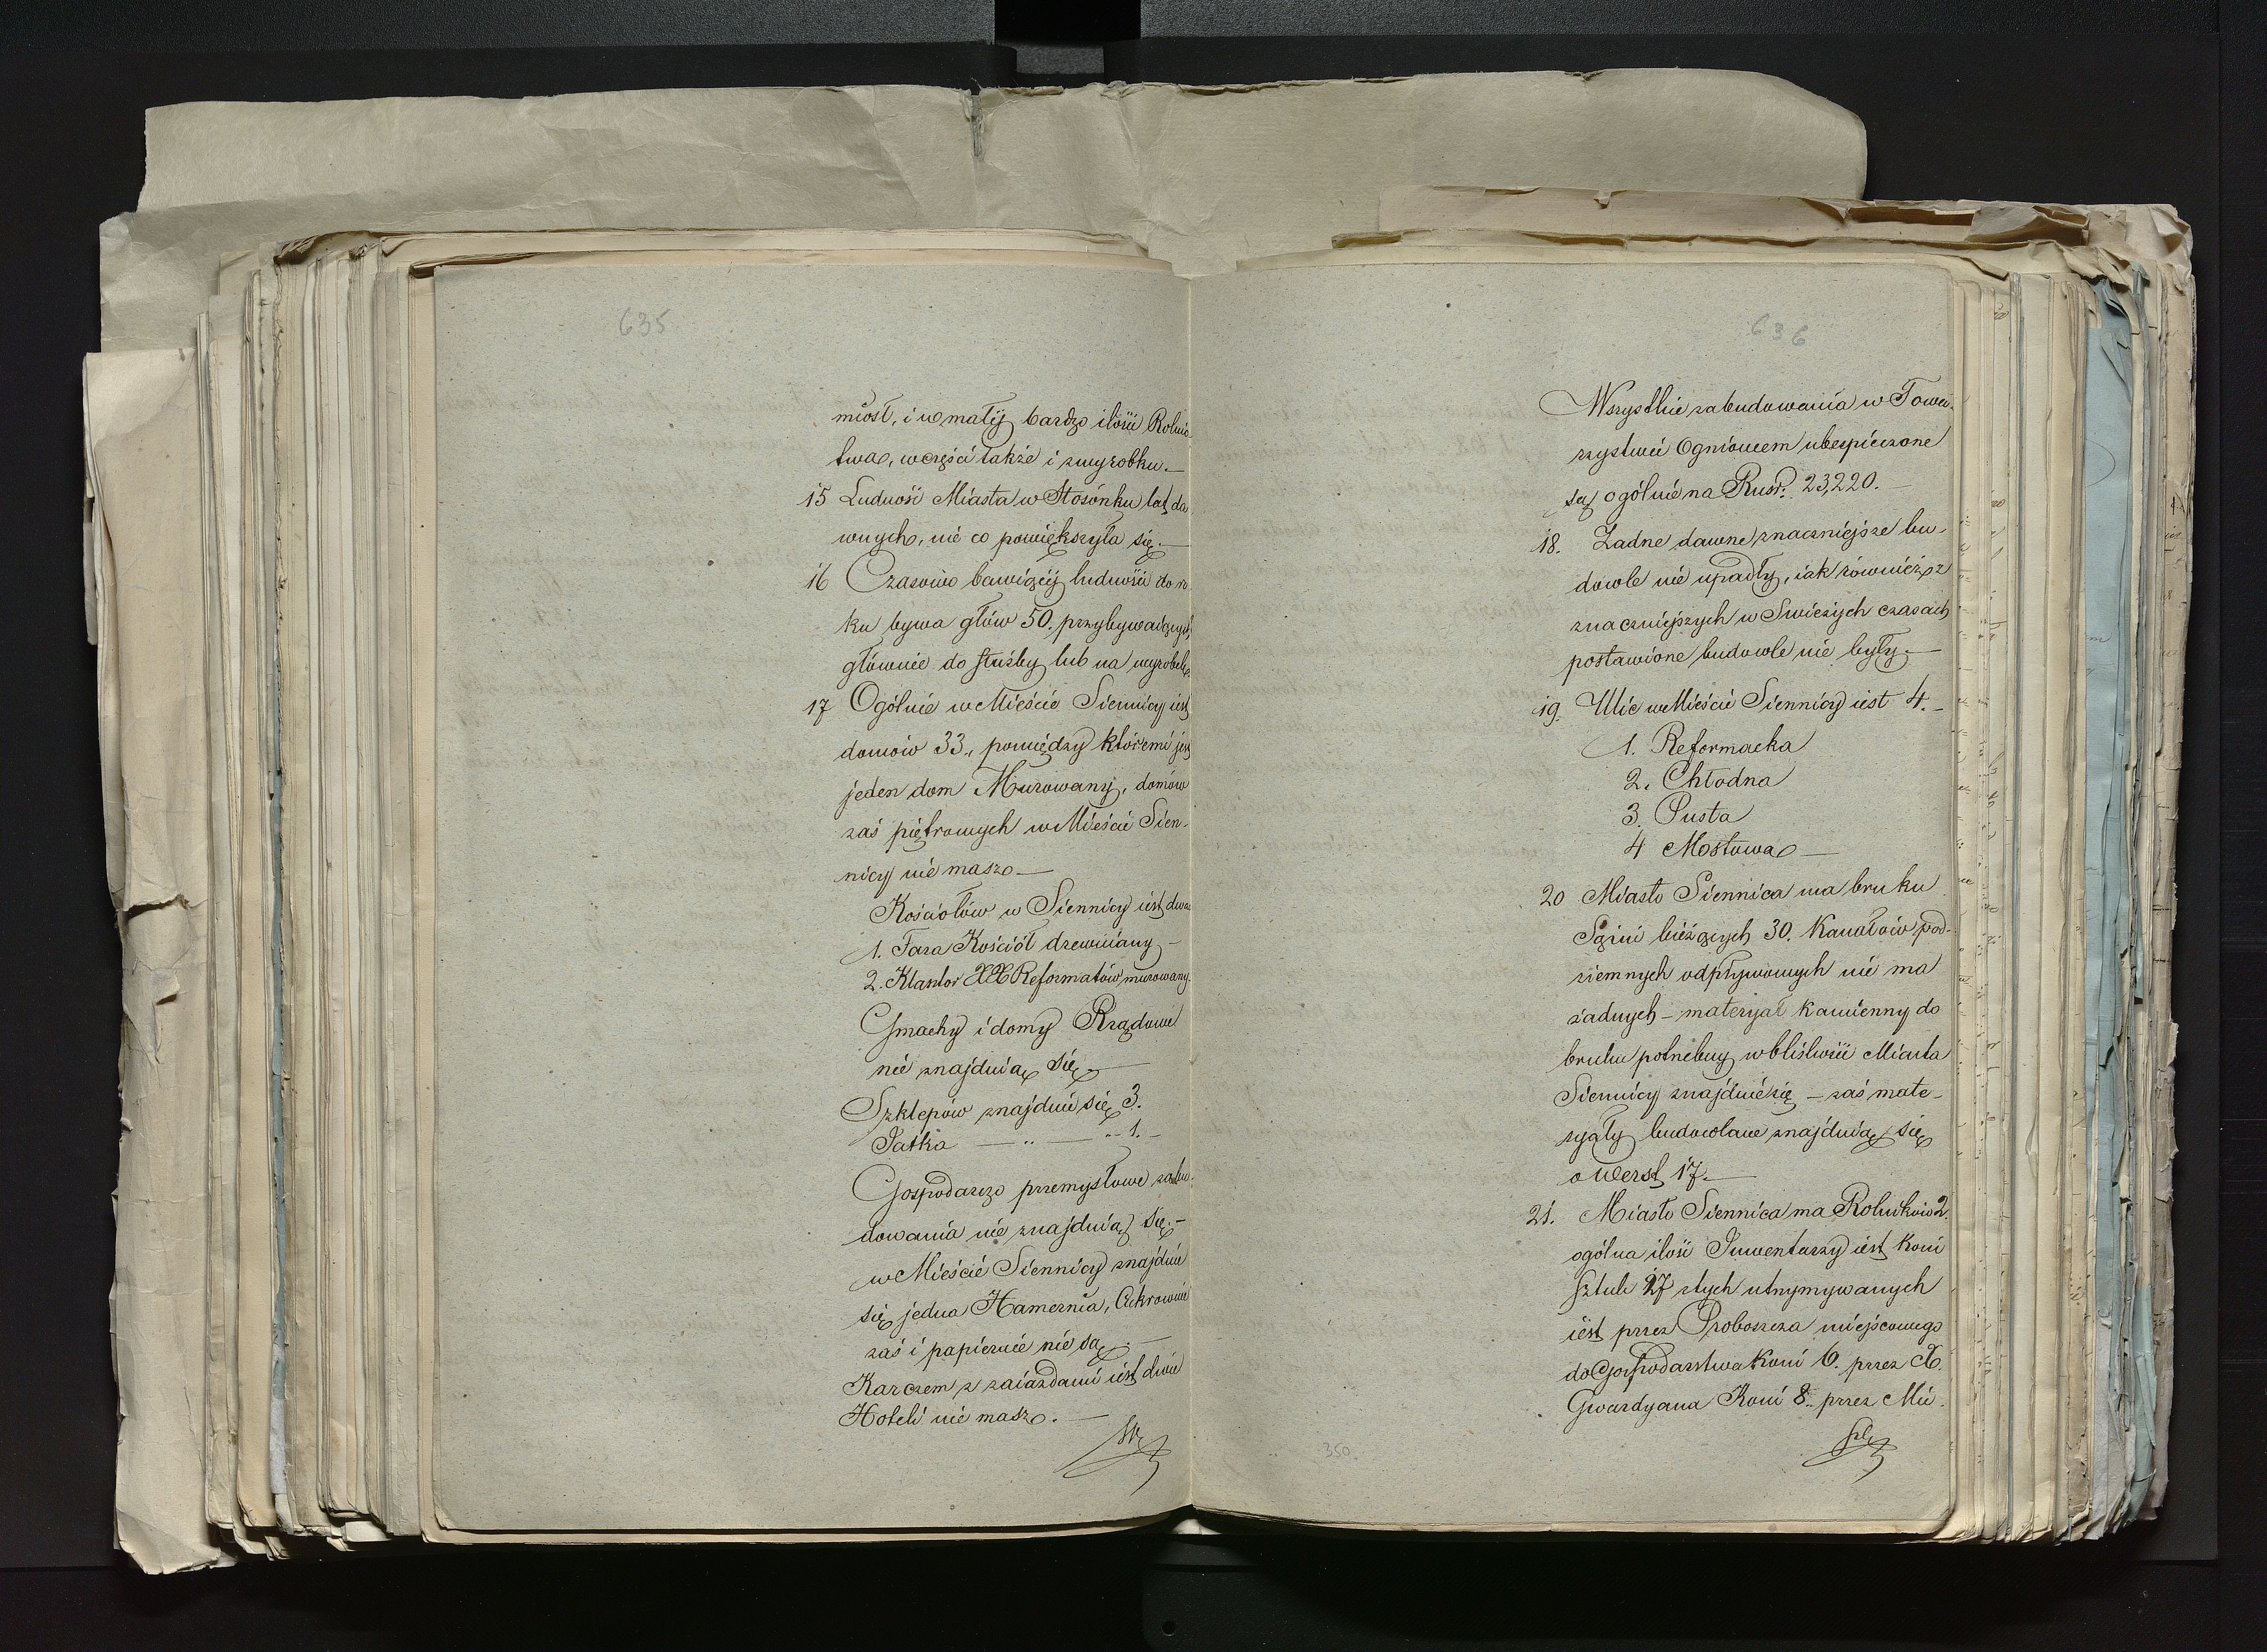 635
miost, i w małéj bardzo ilości Rolnic-
twa, w części także i z wyrobku. —
15 Ludność Miasta w Stosónku lat da
wnych, nie co powiększyła się. —
16 Czasowo bawiącéj ludności do ro
ku bywa głów 50. przybywaiących
głównie do służby lub na wyrobek
17 Ogólnie w Mieście Siennicy iest
domów 33., pomiędzy któremi jest
jeden dom Murowany, domów
zaś piętrowych w Mieście Sien-
nicy nie masz —
Kościołów w Siennicy iest dwa
1. Fara Kościół drewniany —
2. Klasztor XX Reformatów murowany.
Gmachy i domy Rządowe
nie znajduią się. —
Szklepów znajduie się 3.
Jatka — „ — „ 1. —
Gospodarczo przemysłowe zabu-
dowania nie znajduią się. —
w Mieście Siennicy znajduie
się jedna Hamernia, Cukrownie
zaś i papiernie nie są. —
Karczem z zaiazdami iest dwie
Hoteli nie masz. —
636
Wszystkie zabudowania w Towa-
rzystwie Ogniowem ubespieczone
są ogólnie na Rusr. 23,220. —
18. Żadne dawne znaczniejsze bu-
dowle nie upadły, iak również z
znaczniejszych w Swieżych czasach
postawione budowle nie były. —
19. Ulic w Mieście Siennicy iest 4. —
1. Reformacka
2. Chłodna
3. Pusta
4 Mostowa —
20 Miasto Siennica ma bruku
Sążni bieżących 30. Kanałów pod-
ziemnych odpływowych nie ma
żadnych — materyał kamienny do
bruku potrzebny w bliskości Miasta
Siennicy znajduie się — zaś mate-
ryały budowlane znajduią się
o Werst 17. —
21. Miasto Siennica ma Rolników 2.
ogólna ilość Inwentarzy iest Koni
sztuk 27 z tych utrzymywanych
iest przez Proboszcza miejscowego
do Gospodarstwa Koni 6. przez X.
Gwardyana Koni 8. przez Mie-
350